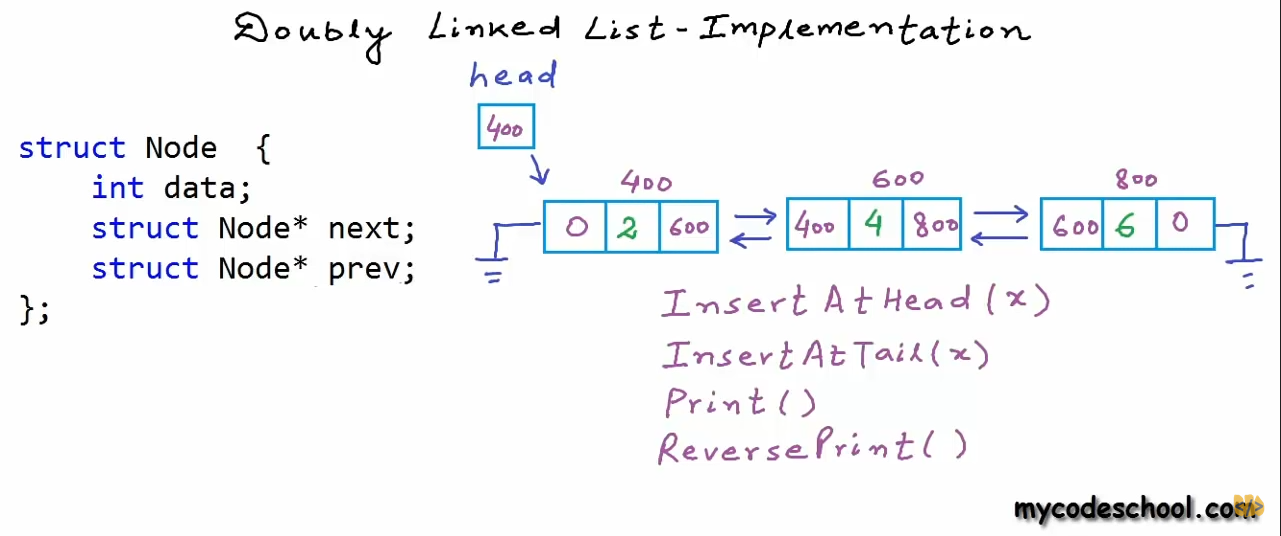 Doubly Linked List-Implementation
head
400
struct Node {
int data;
struct Node* next;
struct Node* prev;
};
400 600 800
0 2 600 400 4 800 600 6 0
InsertAtHead(x)
InsertAtTail(x)
Print()
ReversePrint()
mycodeschool.com